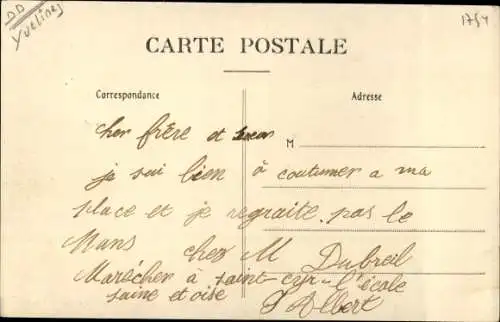 DD
Yvelines
1754
CARTE POSTALE
Correspondance
Adresse
M
cher frère et seur
je sui bien à coutumer a ma
place et je regraite pas le
Mans chez M Dubreil
Marécher à saint-cyr-l'école
saine et oise
Albert